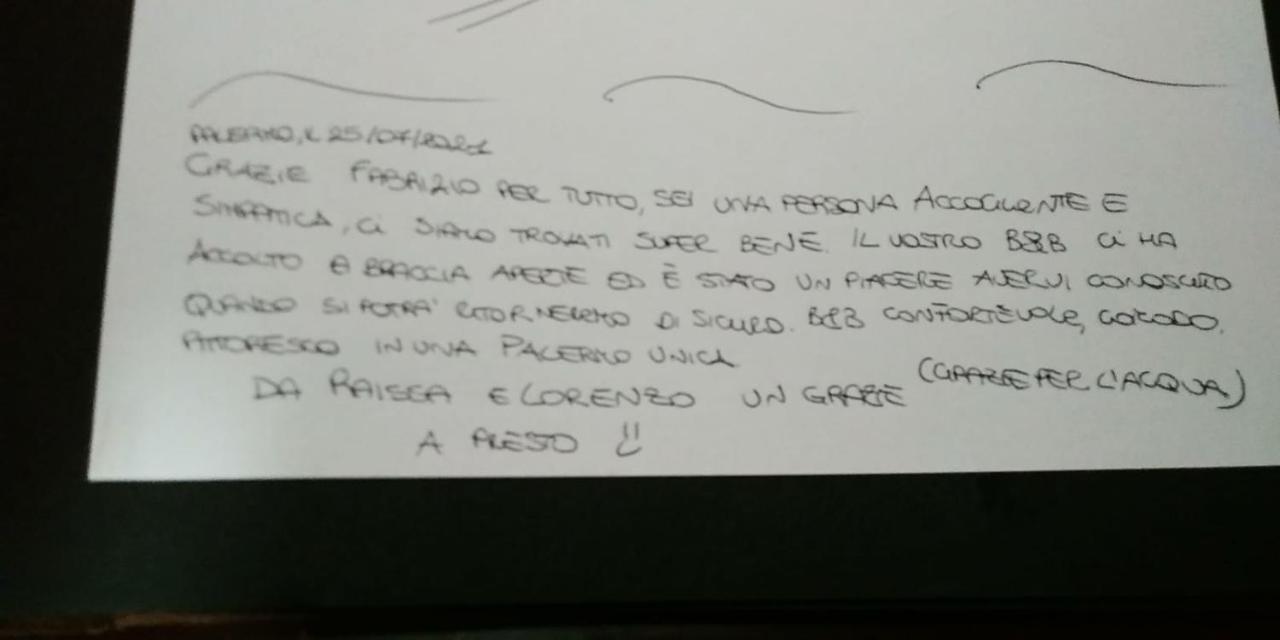 PALERMO, IL 25/07/2021
GRAZIE FABRIZIO PER TUTTO, SEI UNA PERSONA ACCOGLIENTE E
SIMPATICA, CI SIAMO TROVATI SUPER BENE. IL VOSTRO B&B CI HA
ACCOLTO A BRACCIA APERTE ED È STATO UN PIACERE AVERVI CONOSCIUTO
QUANDO SI POTRA' RITORNEREMO DI SICURO. B&B CONFORTEVOLE, COMODO,
PITTORESCO IN UNA PALERMO UNICA
DA RAISSA E LORENZO UN GRAZIE (GRAZIE PER L'ACQUA)
A PRESTO